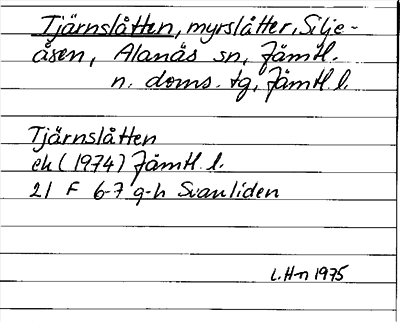 Tjärnslåtten, myrslåtter, Silje-
åsen, Alanäs sn, Jämtl.
n. doms. tg, Jämtl. l.
Tjärnslåtten
ek (1974) Jämtl. l.
21 F 6-7 g-h Svanliden
L.H-n 1975